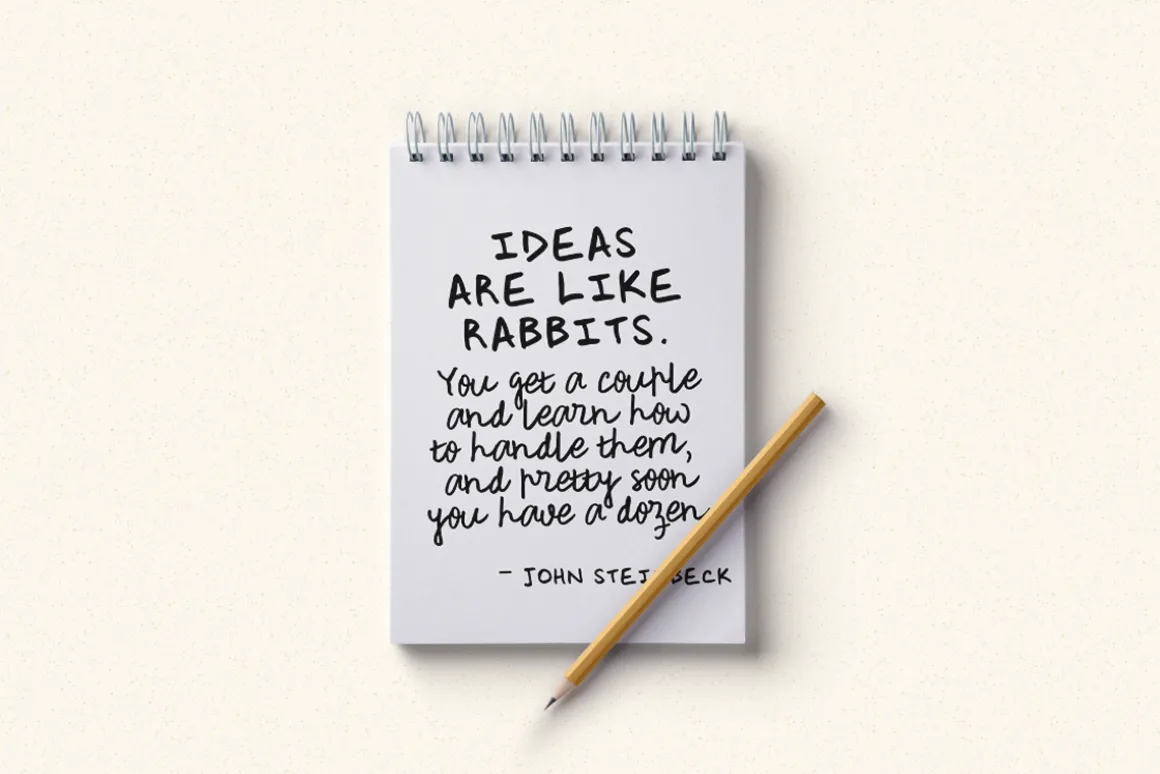 IDEAS
ARE LIKE
RABBITS.
You get a couple
and learn how
to handle them,
and pretty soon
you have a dozen
- JOHN